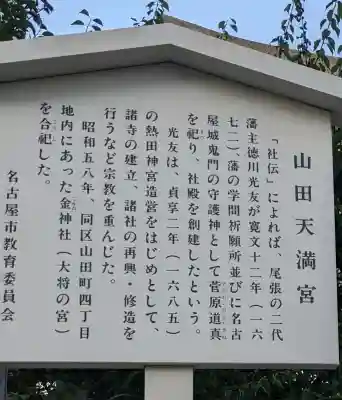 山田天満宮
「社伝」によれば、尾張の二代
藩主徳川光友が寛文十二年（一六
七二）、藩の学問祈願所並びに名古
屋城鬼門の守護神として菅原道真
を祀り、社殿を創建したという。
光友は、貞享二年（一六八五）
の熱田神宮造営をはじめとして、
諸寺の建立、諸社の再興・修造を
行うなど宗教を重んじた。
昭和五八年、同区山田町四丁目
地内にあった金神社（大将の宮）
を合祀した。
名古屋市教育委員会